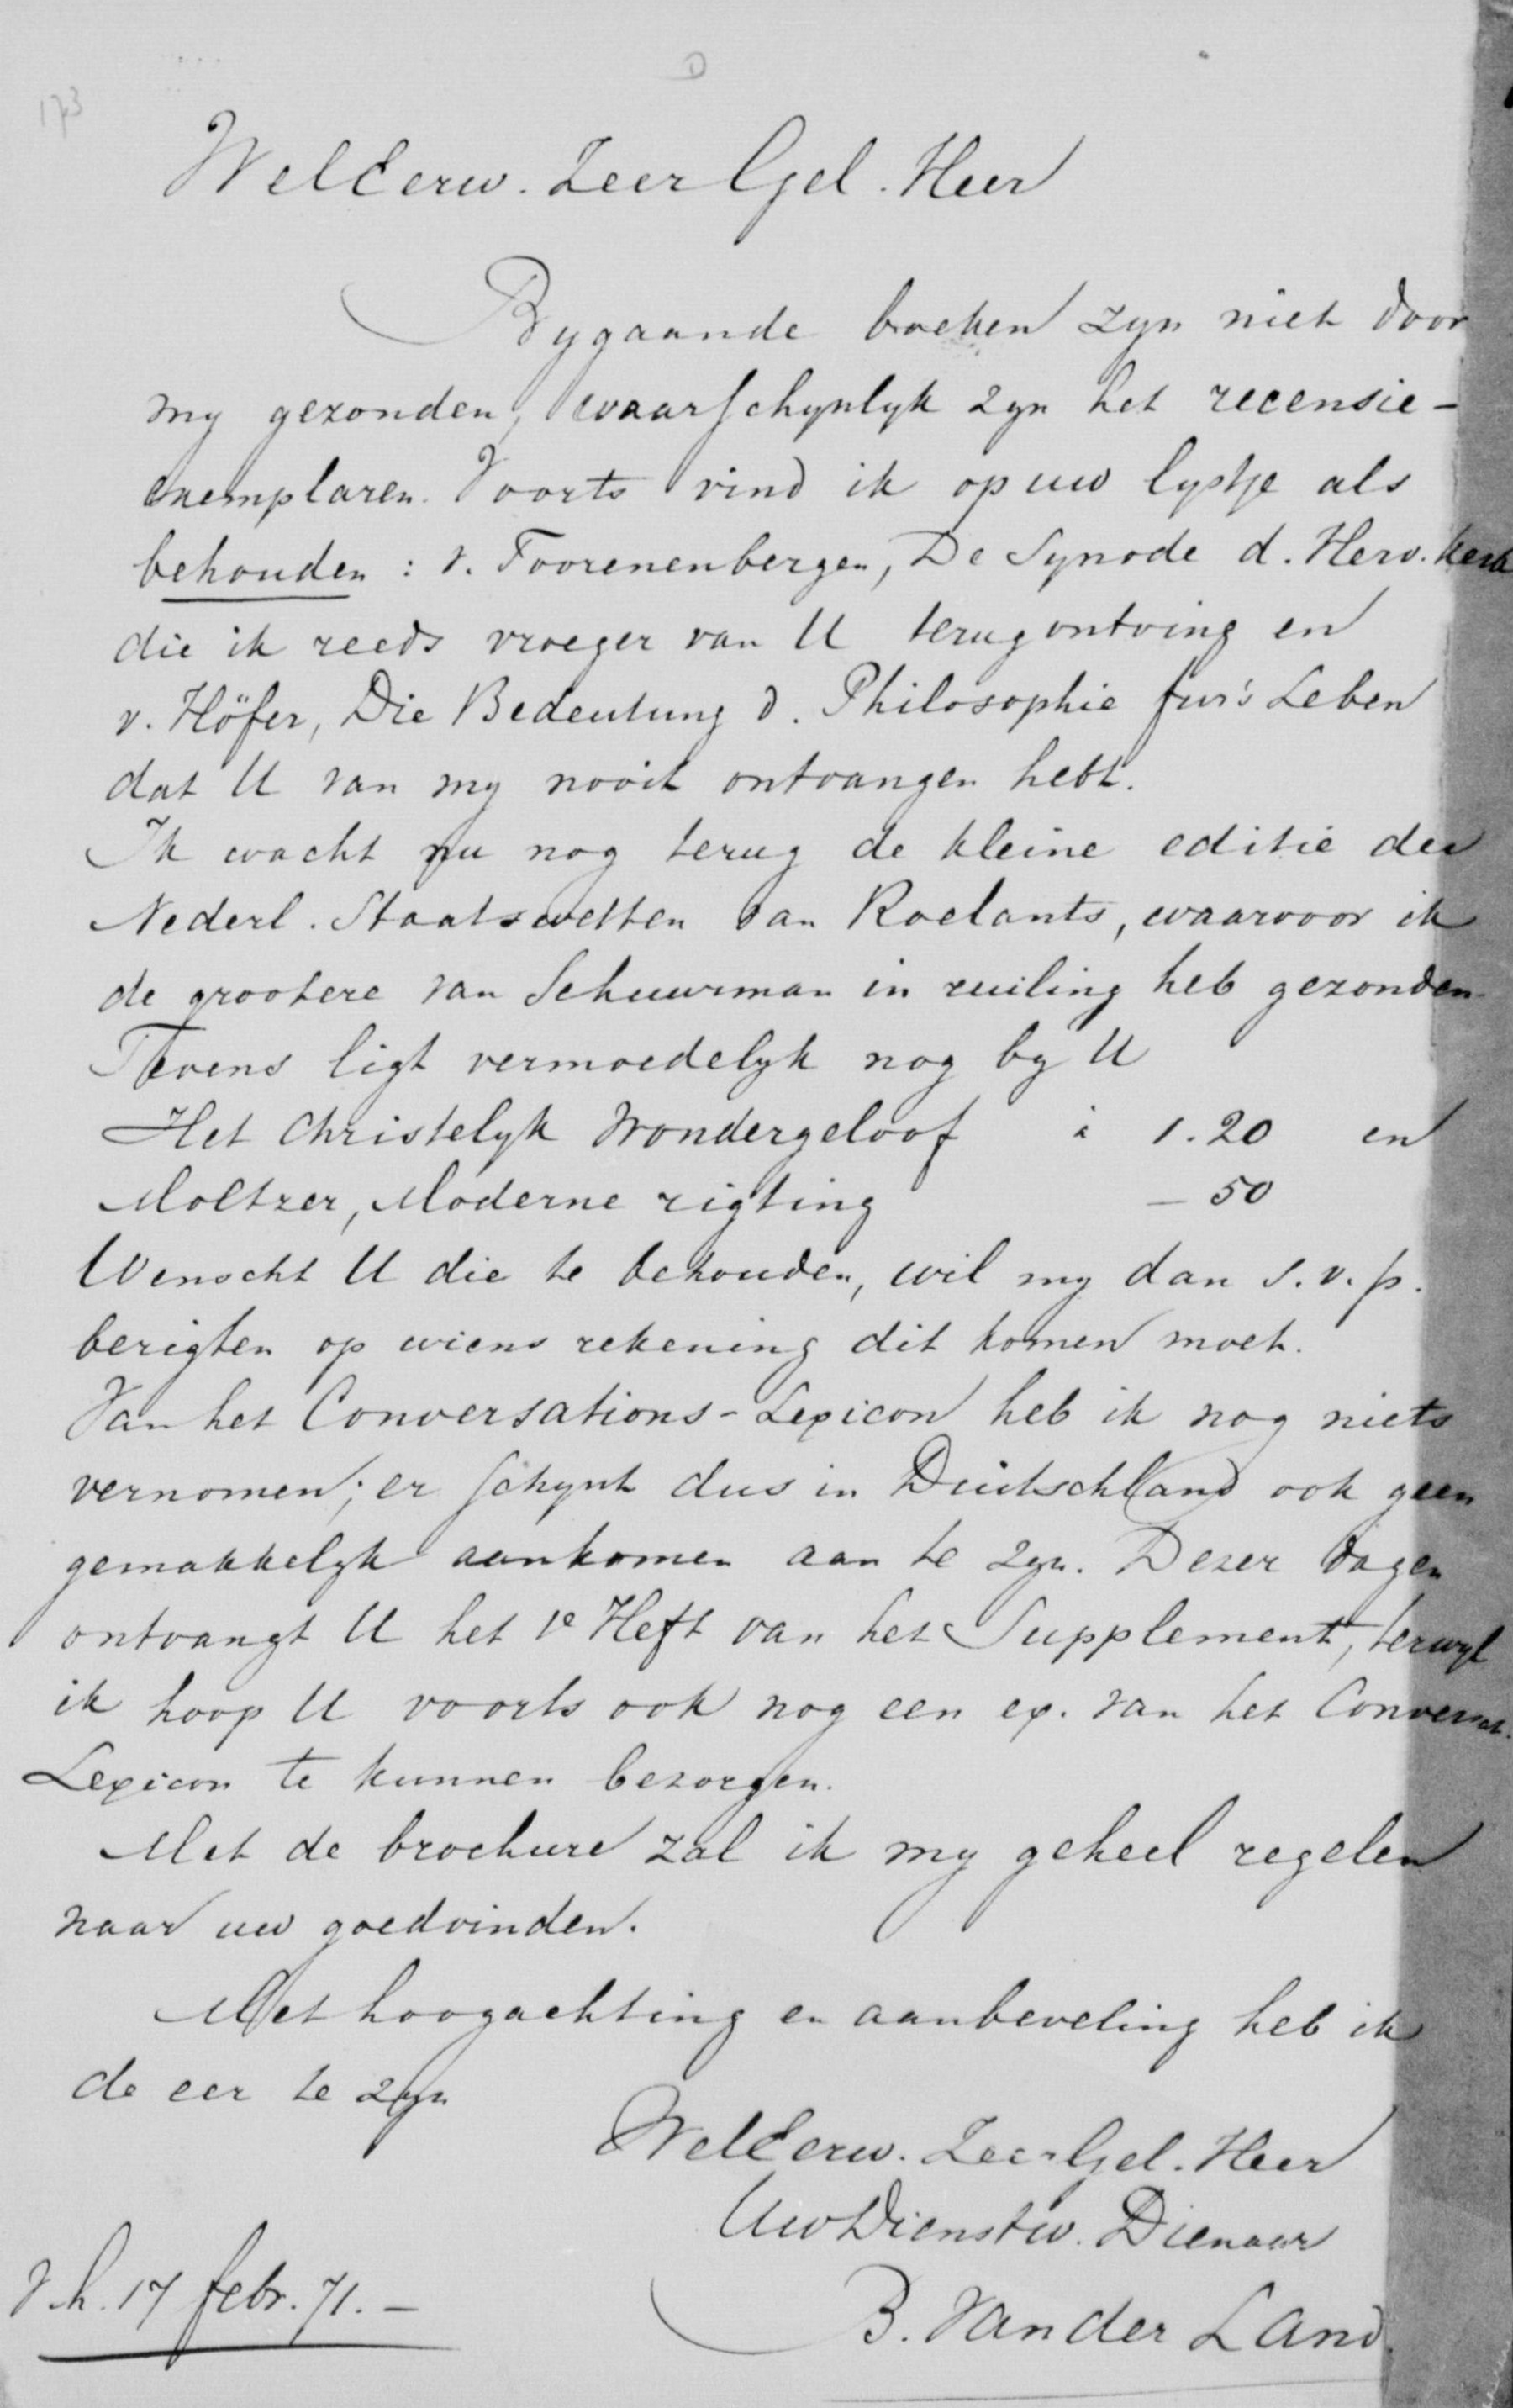 173
D
WelEerw. Zeer Gel. Heer
Bygaande boeken zyn niet door
my gezonden, waarschynlyk zyn het recensie-
exemplaren. Voorts vind ik op uw lystje als
behouden : v. Toorenenbergen, De Synode d. Herv. Kerk
die ik reeds vroeger van U terug ontving en
v. Höfer, Die Bedeutung d. Philosophie fur's Leben
dat U van my nooit ontvangen hebt.
Ik wacht nu nog terug de kleine editie der
Nederl. Staatswetten van Roelants, waarvoor ik
de grootere van Schuurman in ruiling heb gezonden.
Tevens ligt vermoedelyk nog by U
Het Christelyk Wondergeloof à 1.20 en
Moltzer, Moderne rigting — 50
Wenscht U die te behouden, wil my dan s.v.p.
berigten op wiens rekening dit komen moet.
Van het Conversations-Lexicon heb ik nog niets
vernomen; er schynt dus in Duitschland ook geen
gemakkelyk aankomen aan te zyn. Dezer dagen
ontvangt U het 1e Heft van het Supplement, terwyl
ik hoop U voorts ook nog een ex. van het Conversat.
Lexicon te kunnen bezorgen.
Met de brochure zal ik my geheel regelen
naar uw goedvinden.
Met hoogachting en aanbeveling heb ik
de eer te zyn
WelEerw. Zeer Gel. Heer
Uw Dienstw. Dienaar
B. Van der Land.
17 febr. 71. —